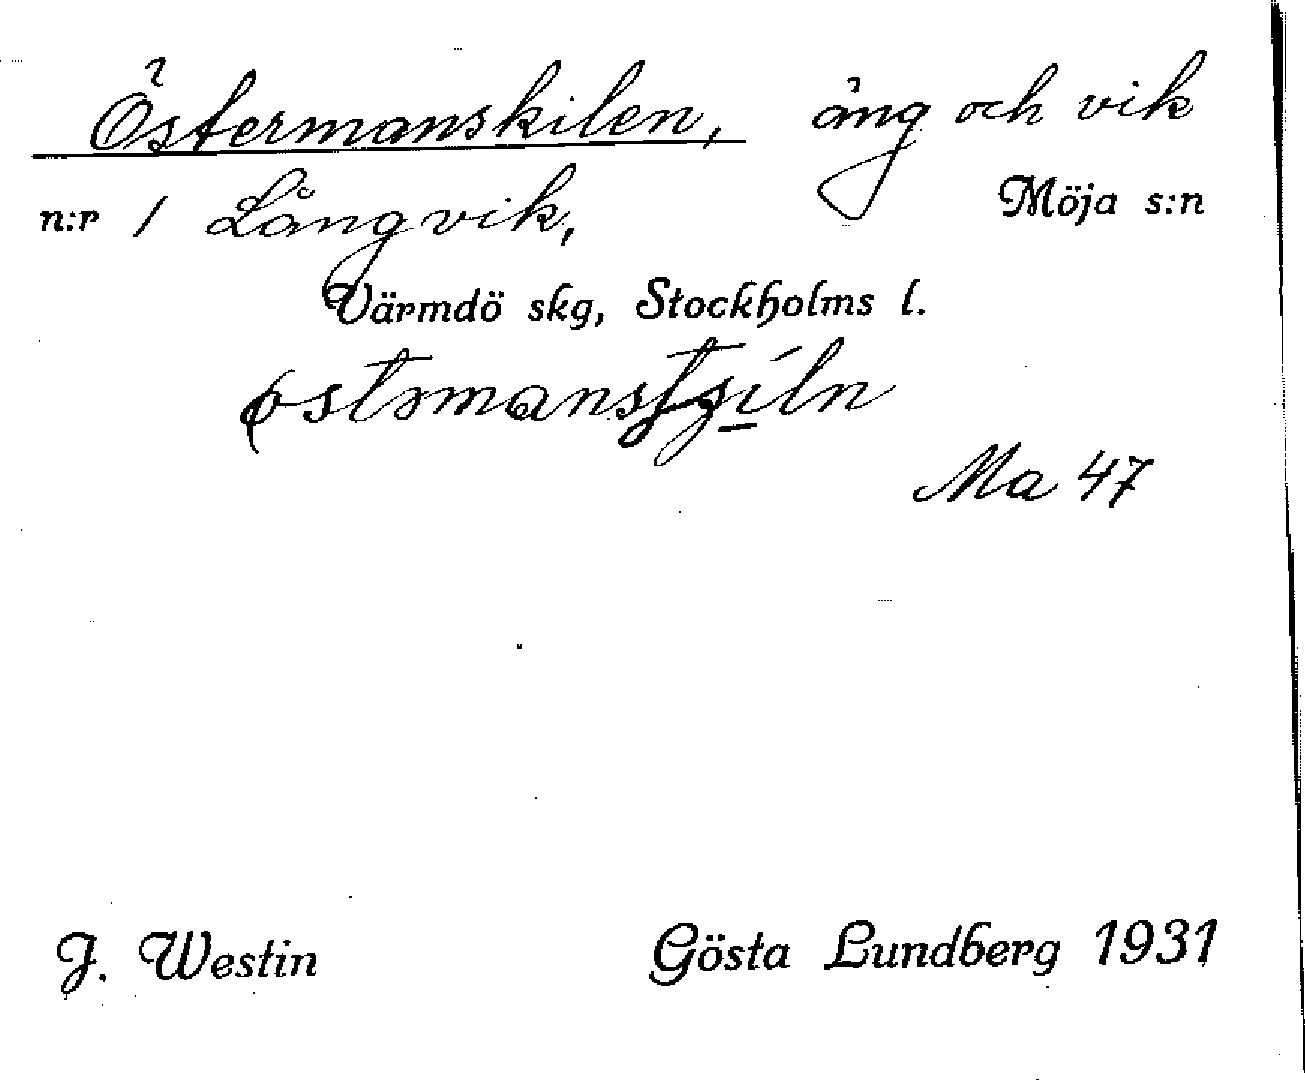 Östermanskilen, äng och vik
n:r 1 Långvik, Möja s:n
Värmdö skg, Stockholms l.
Ma 47
J. Westin Gösta Lundberg 1931